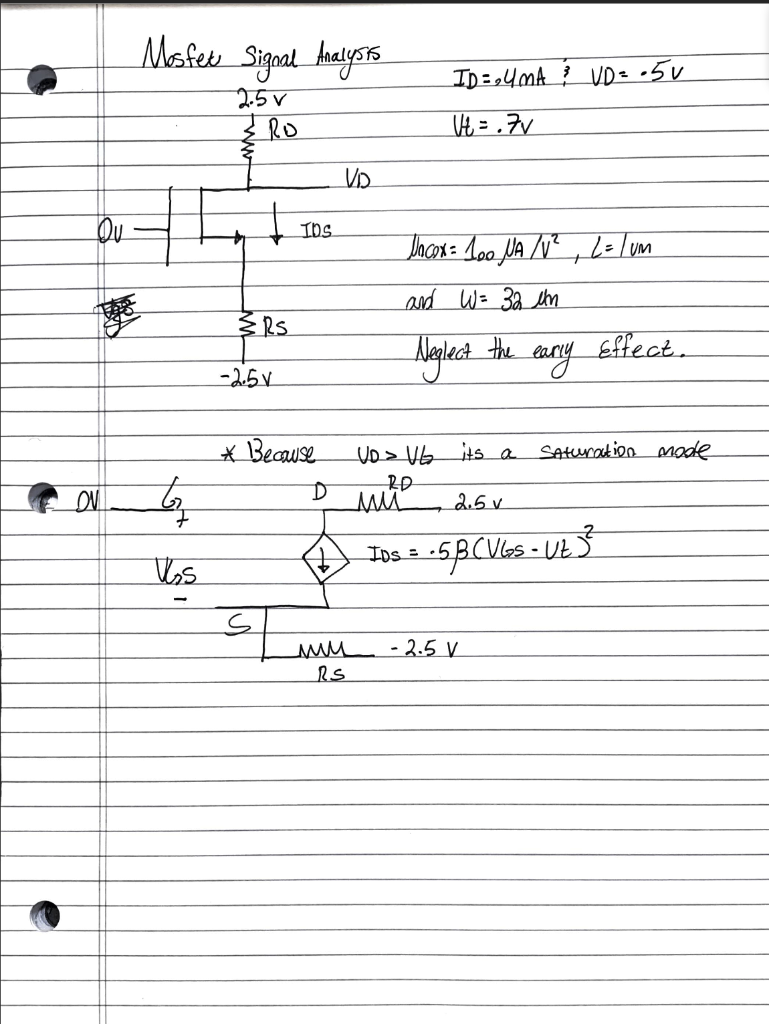 Mosfet Signal Analysis
ID = .4mA & VD = .5v
2.5 v
RD
Vt = .7v
VD
0v
IDS
μncox = 100 μA/V², L = 1um
and W = 32 μm
RS
Neglect the early Effect.
-2.5 v
* Because VD > VG its a saturation mode
0V G D RD 2.5 v
+
IDS = .5β(VGS - Vt)²
VGS
-
S
- 2.5 V
RS